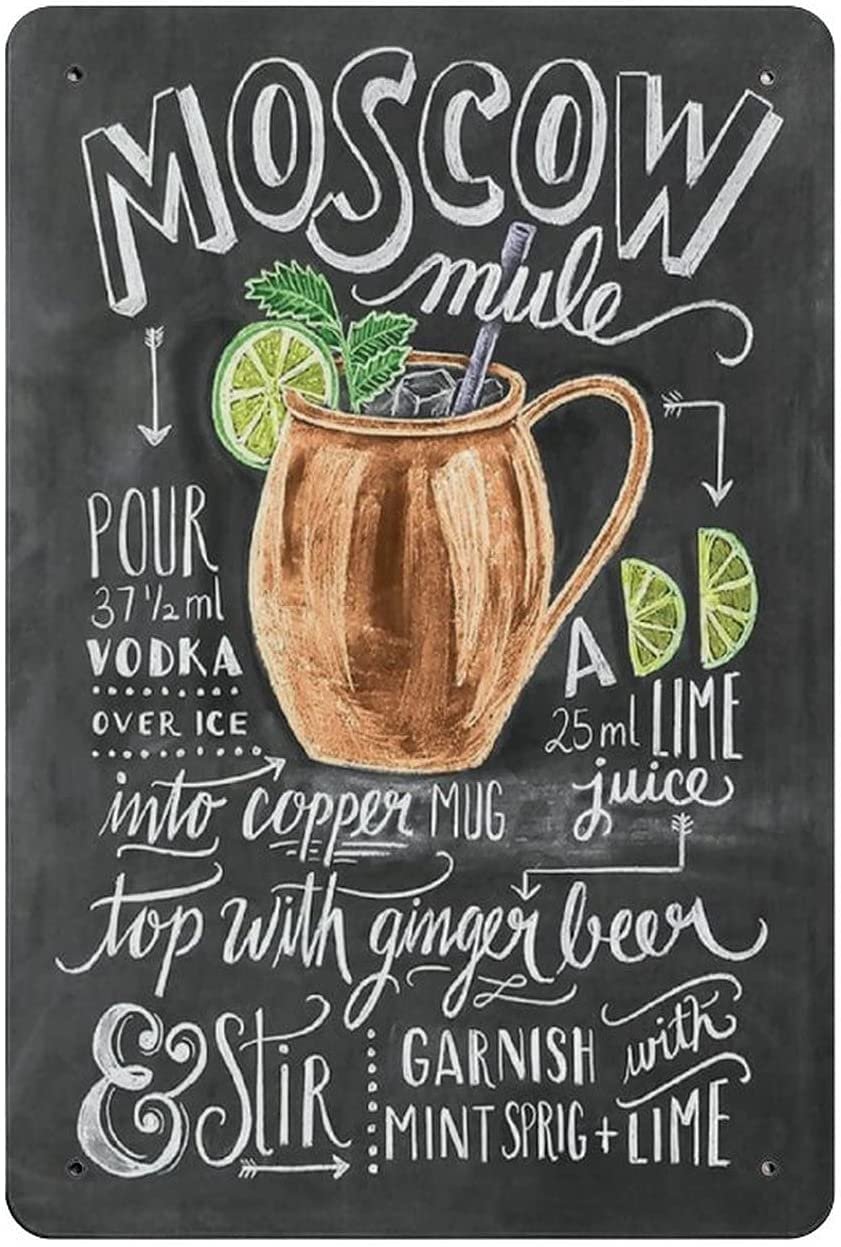 MOSCOW
mule
POUR
37 ½ ml
VODKA
OVER ICE
into copper MUG
ADD
25 ml LIME
juice
top with ginger beer
& Stir
GARNISH with
MINT SPRIG + LIME